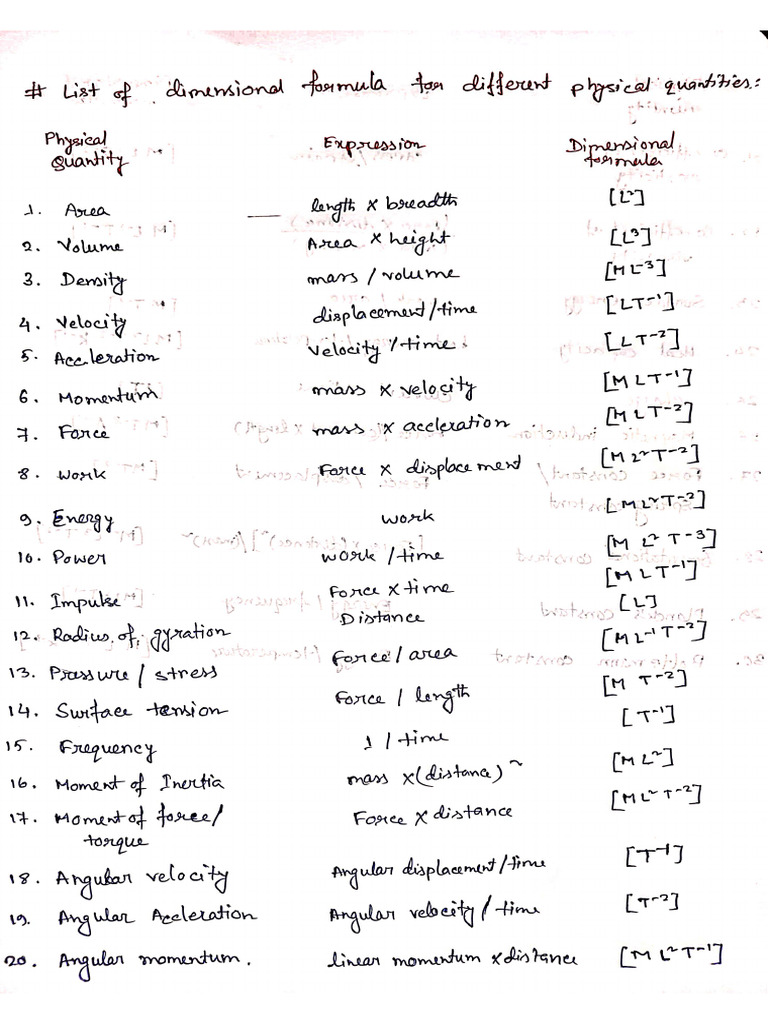 # List of dimensional formula for different physical quantities:
Physical Quantity Expression Dimensional formula
1. Area — length × breadth [L²]
2. Volume Area × height [L³]
3. Density mass / volume [ML⁻³]
4. Velocity displacement/time [LT⁻¹]
5. Accleration Velocity / time. [LT⁻²]
6. Momentum mass × velocity [MLT⁻¹]
7. Force mass × accleration [MLT⁻²]
8. Work Force × displacement [ML²T⁻²]
9. Energy work [ML²T⁻²]
10. Power work / time [ML²T⁻³]
11. Impulse Force × time [MLT⁻¹]
12. Radius of gyration Distance [L]
13. Pressure / stress Force / area [ML⁻¹T⁻²]
14. Surface tension Force / length [MT⁻²]
15. Frequency 1 / time [T⁻¹]
16. Moment of Inertia mass × (distance)² [ML²]
17. Moment of force / Force × distance [ML²T⁻²]
torque
18. Angular velocity Angular displacement/time [T⁻¹]
19. Angular Accleration Angular velocity / time [T⁻²]
20. Angular momentum. linear momentum × distance [ML²T⁻¹]